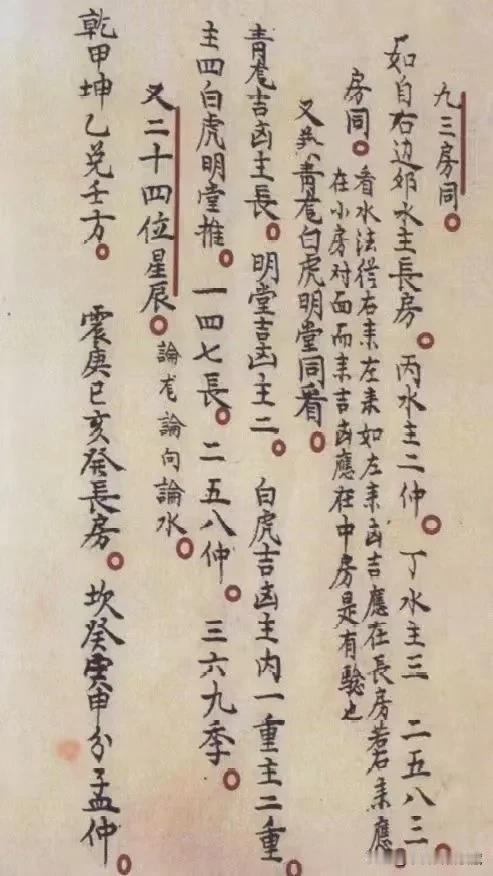 九三房同。
如自右边邜水主長房。丙水主二仲。丁水主三 二五八三。
房同。看水法從右耒左耒如左耒凶吉應在長房若右耒應
在小房对面而耒吉凶應在中房是有驗也
又與青龙白虎明堂同看。
青龙吉凶主長。明堂吉凶主二。白虎吉凶主内一重主二重
主四白虎明堂推。一四七長。二五八仲。三六九季。
又二十四位星辰。論龙論向論水。
乾甲坤乙兑壬方。震庚巳亥發長房。坎癸寅申分孟仲。